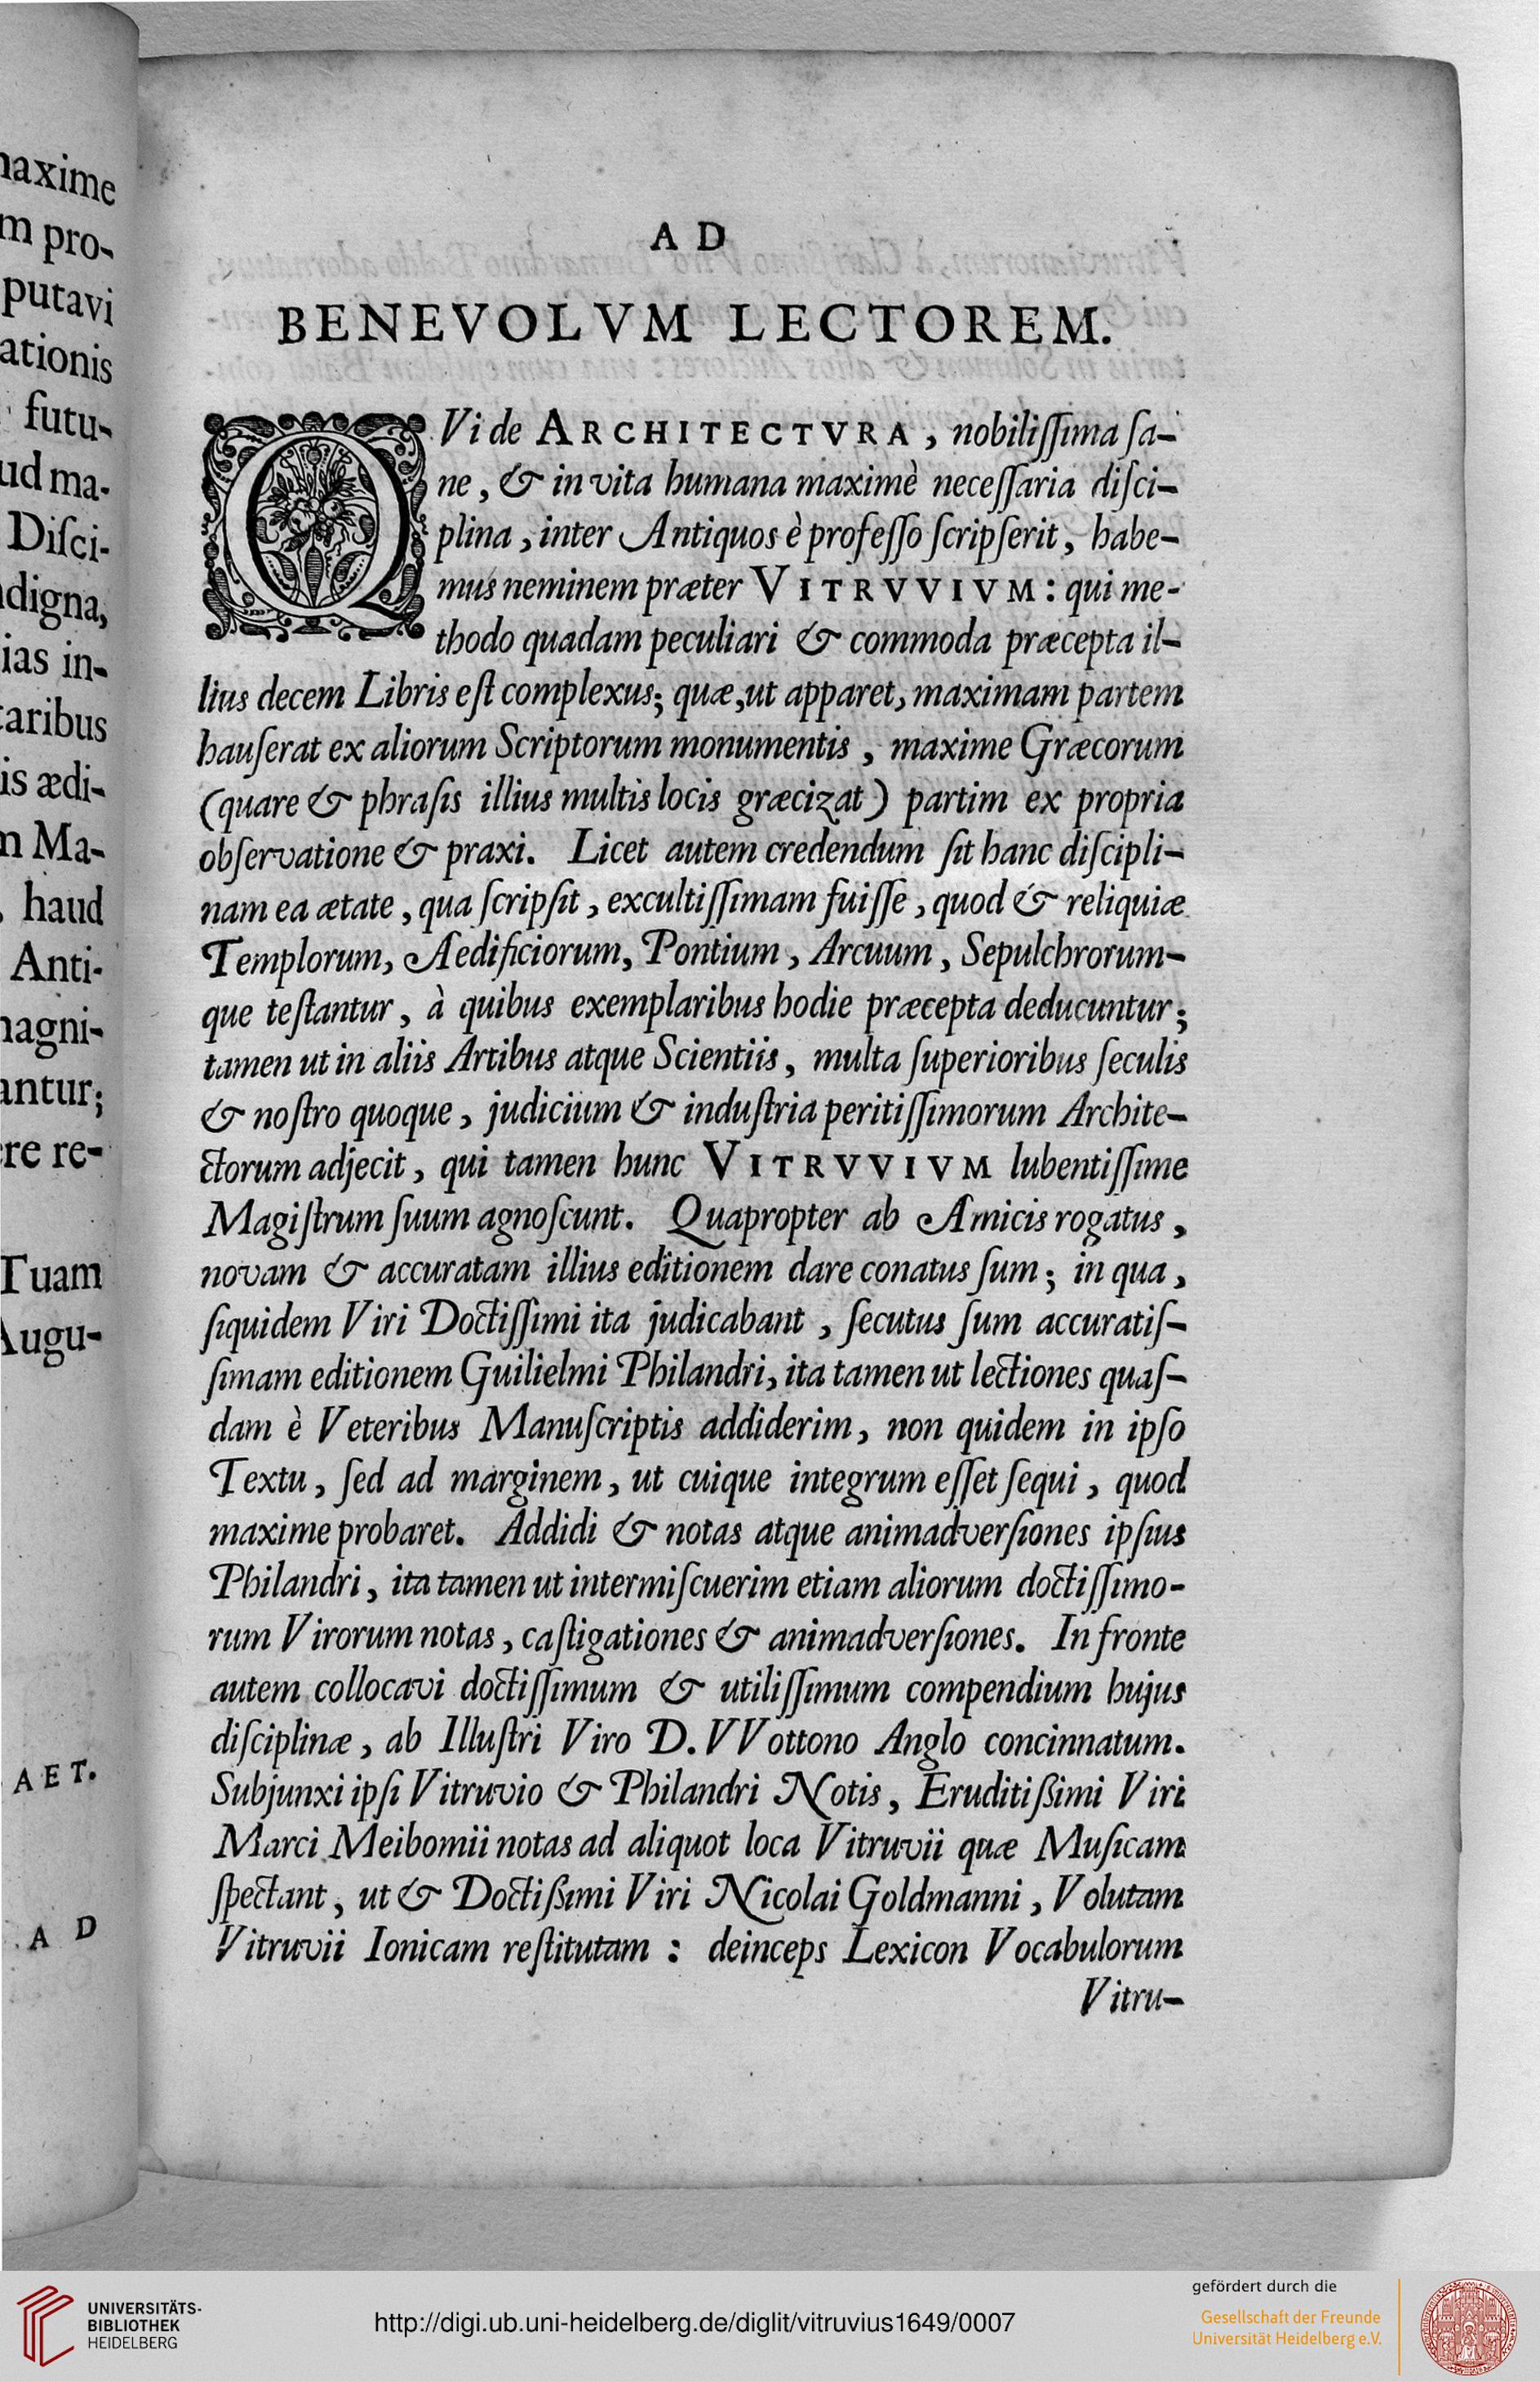 naxime
m pro-
putavi
ationis
futu-
ud ma-
Diſci-
digna,
ias in-
taribus
is ædi-
n Ma-
haud
Anti-
nagni-
antur;
re re-
Tuam
Augu-
AET.
A D
A D
BENEVOLVM LECTOREM.
QVi de ARCHITECTVRA, nobiliſſima ſa-
ne, & in vita humana maximè neceſſaria diſci-
plina, inter Antiquos è profeſſo ſcripſerit, habe-
mus neminem præter VITRVVIVM: qui me-
thodo quadam peculiari & commoda præcepta il-
lius decem Libris eſt complexus; quæ, ut apparet, maximam partem
hauſerat ex aliorum Scriptorum monumentis, maxime Græcorum
(quare & phraſis illius multis locis græcizat) partim ex propria
obſervatione & praxi. Licet autem credendum ſit hanc diſcipli-
nam ea ætate, qua ſcripſit, excultiſſimam fuiſſe, quod & reliquiæ
Templorum, Aedificiorum, Pontium, Arcuum, Sepulchrorum-
que teſtantur, à quibus exemplaribus hodie præcepta deducuntur;
tamen ut in aliis Artibus atque Scientiis, multa ſuperioribus ſeculis
& noſtro quoque, judicium & induſtria peritiſſimorum Archite-
ctorum adjecit, qui tamen hunc VITRVVIVM lubentiſſime
Magiſtrum ſuum agnoſcunt. Quapropter ab Amicis rogatus,
novam & accuratam illius editionem dare conatus ſum; in qua,
ſiquidem Viri Doctiſſimi ita judicabant, ſecutus ſum accuratiſ-
ſimam editionem Guilielmi Philandri, ita tamen ut lectiones quaſ-
dam è Veteribus Manuſcriptis addiderim, non quidem in ipſo
Textu, ſed ad marginem, ut cuique integrum eſſet ſequi, quod
maxime probaret. Addidi & notas atque animadverſiones ipſius
Philandri, ita tamen ut intermiſcuerim etiam aliorum doctiſſimo-
rum Virorum notas, caſtigationes & animadverſiones. In fronte
autem collocavi doctiſſimum & utiliſſimum compendium hujus
diſciplinæ, ab Illuſtri Viro D. VVottono Anglo concinnatum.
Subjunxi ipſi Vitruvio & Philandri Notis, Eruditißimi Viri
Marci Meibomii notas ad aliquot loca Vitruvii quæ Muſicam
ſpectant, ut & Doctißimi Viri Nicolai Goldmanni, Volutam
Vitruvii Ionicam reſtitutam: deinceps Lexicon Vocabulorum
Vitru-
UNIVERSITÄTS-
BIBLIOTHEK
HEIDELBERG
http://digi.ub.uni-heidelberg.de/diglit/vitruvius1649/0007
gefördert durch die
Gesellschaft der Freunde
Universität Heidelberg e.V.